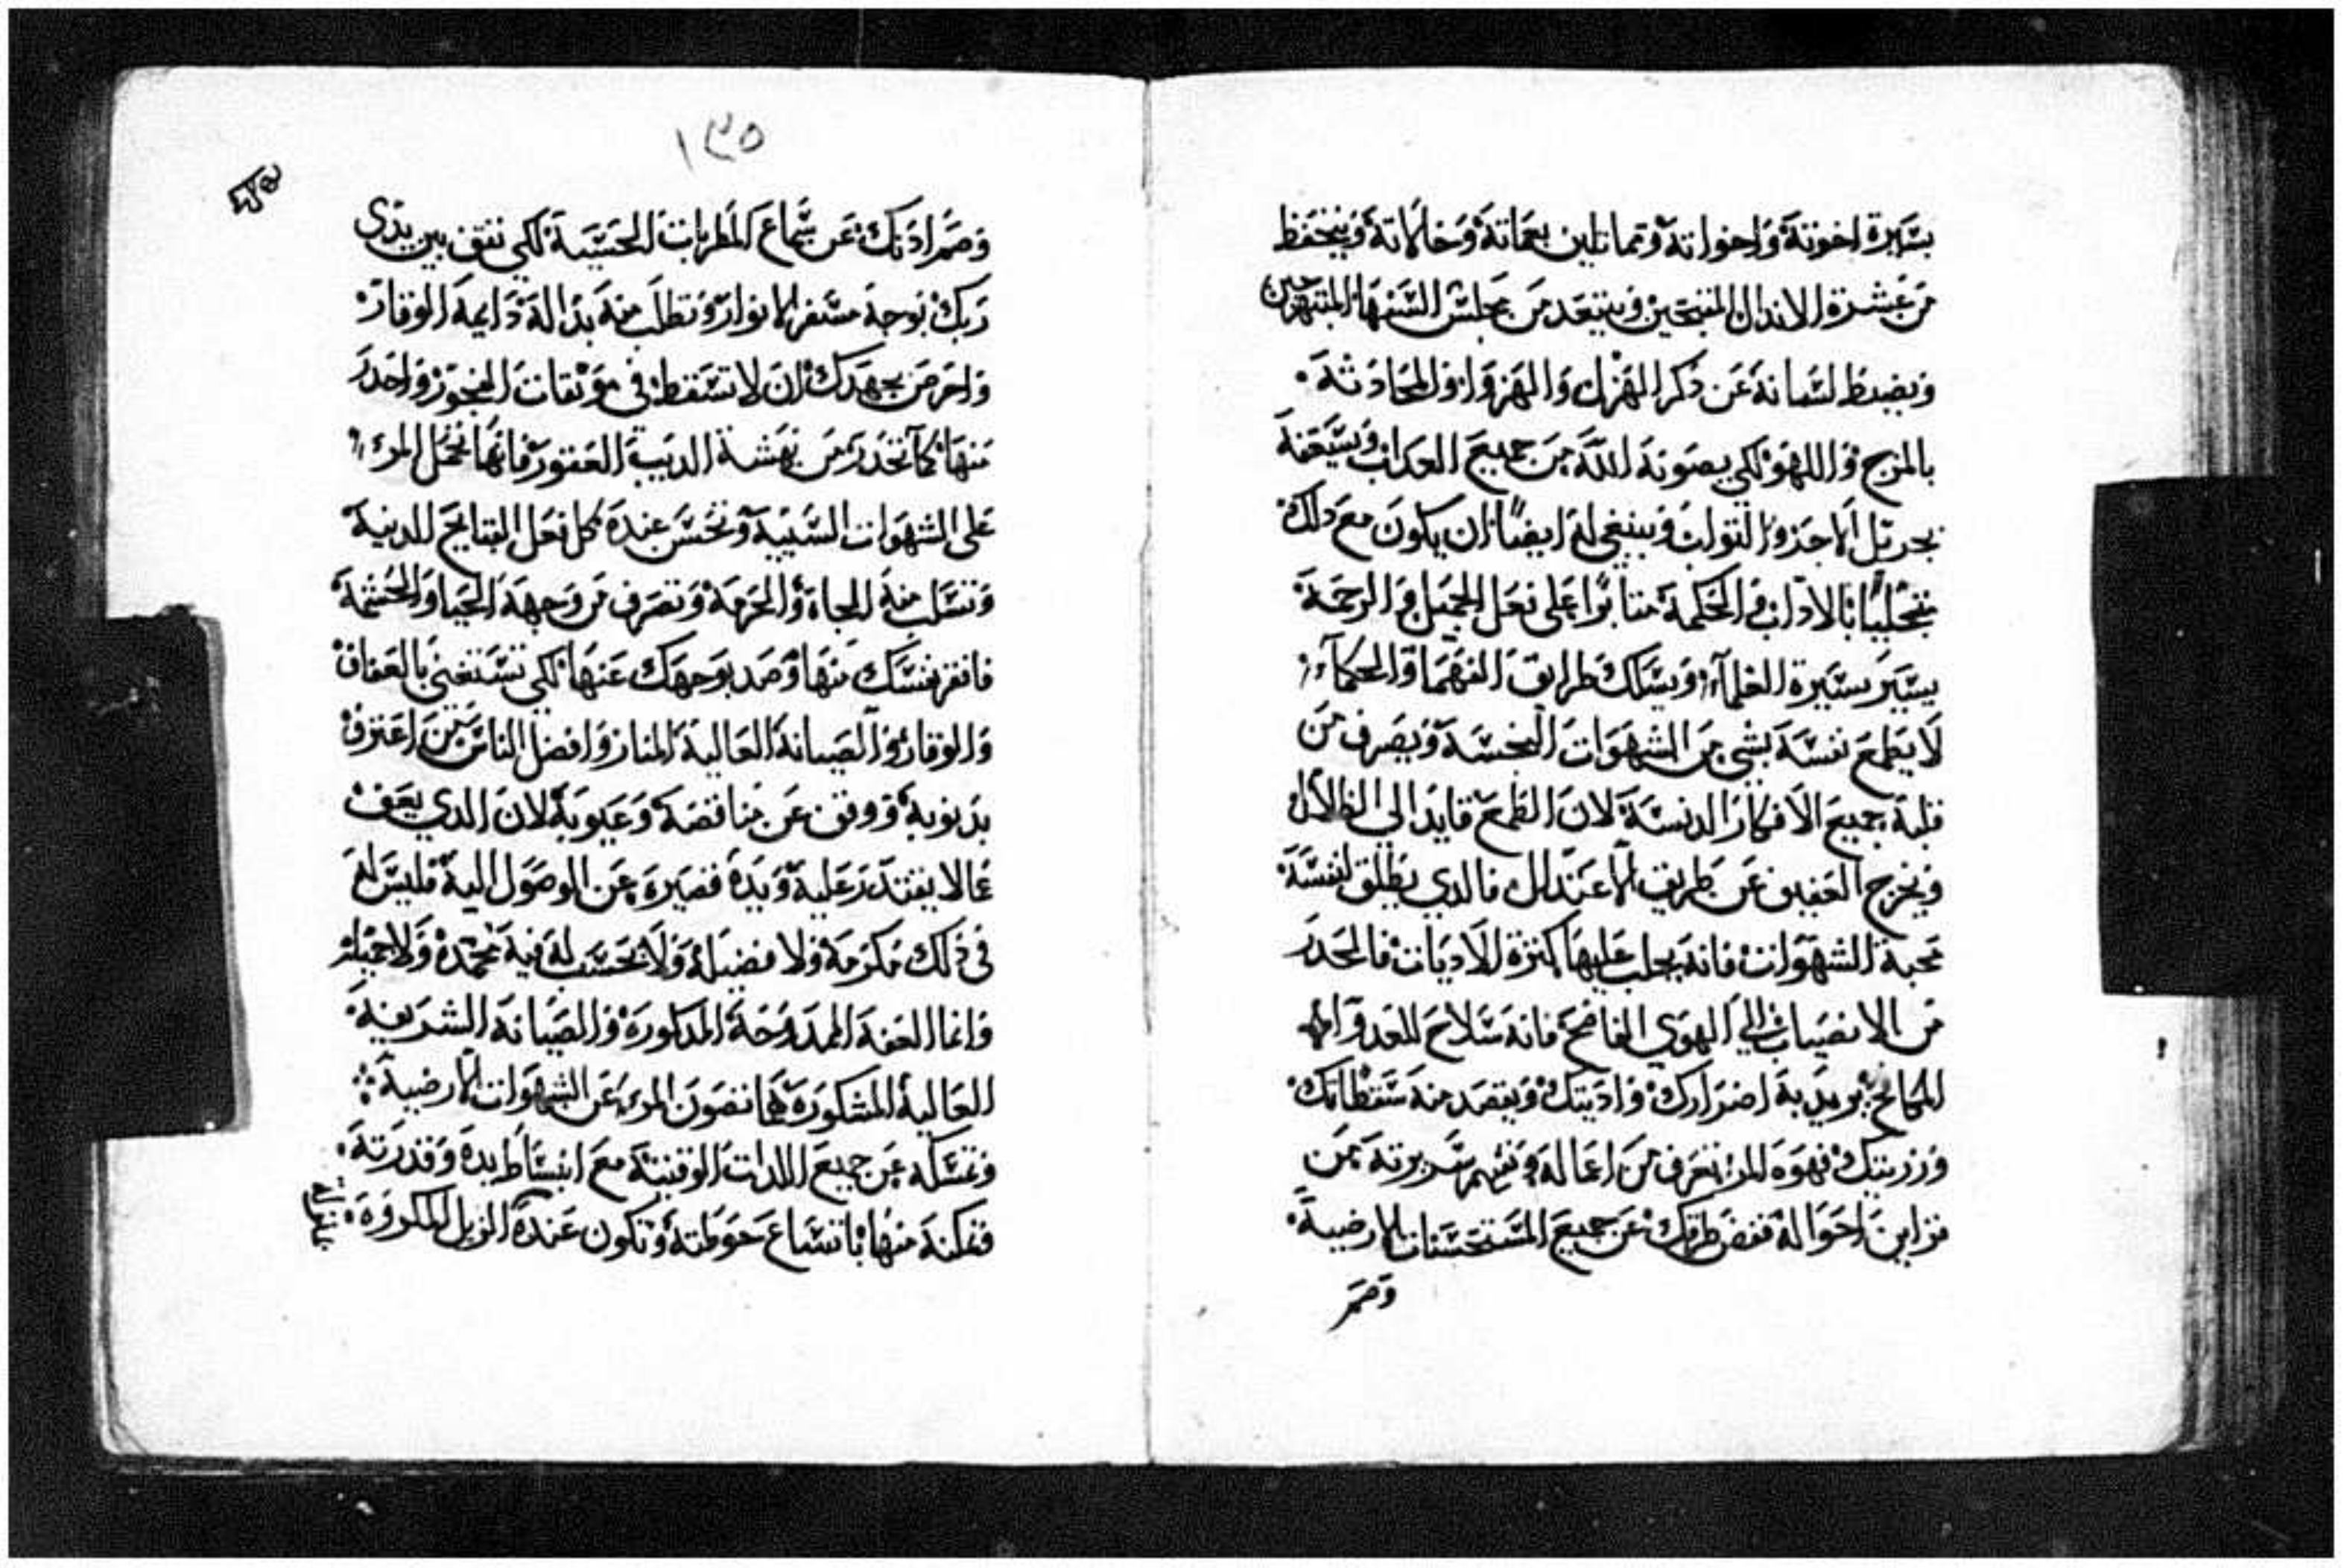 بسايرة اخوته واخواته وتماثلين بعماته وخالاته ويتحفظ
من عشرة الاندال المقبحين ويبتعد من مجلس السفها المتهوين
ويضبط لسانه عن ذكر الهزل والهزو او المحادثة
بالمزح واللهو لكي يصونه الله من جميع العداب ويسعفه
بجزيل الاجر والتواب وينبغي له ايضًا ان يكون مع دلك
متحليًا بالاداب والحكمة متابرًا على فعل الجميل والرحمة
يسير بسيرة العلماء ويسلك طرايق الفهما والحكماء
لا يطمع نفسه بشي من الشهوات النجسة ويصرف من
قلبه جميع الافكار الدنسة لان الطمع قايدا الي الضلال
ويخرج العفيف عن طريق الاعتدال فالدي يطلق لنفسه
محبة الشهوات فانه يجلب عليها كترة الاديات فالحدر
من الانصباب الي الهوي الفاضح فانه سلاح للعدو
المكالح يريد به اضرارك واديتك ويقصد منه سقطاتك
ورزيتك فهوه المرء تعرف من اعماله وتفهم سريرته من
قراين احواله فغض طرفك عن جميع المستحسنات الارضية
وصم
١٣٥
وصم ادنك عن سماع المطربات الحسية لكي تقف بين يدي
ربك بوجه مسفر الانوار وتطلب منه بدالة دايمة الوقار
واحرص بجهدك ان لا تسقط في موبقات الفجور واحدر
منها كما تحدر من نهشة الديب العقور فانها تحمل المرء
على الشهوات السيية وتحسن عنده كل فعل القبايح الدنية
وتسلب منه الجاه والحرمة وتصرف من وجهه الحيا والحشمة
فانفر نفسك منها وصد بوجهك عنها لكي تستغني بالعفاف
والوقار والصيانة العالية المنار وافضل الناس من اعترف
بدنوبه ووقف عن مناقصه وعيوبه لان الدي يعف
عما لا يقتدر عليه ويده قصيرة عن الوصول اليه فليس له
في ذلك مكرمة ولا فضيلة ولا يحسب له فيه محمدة ولا جميلة
وانما العفة الممدوحة المدكورة والصيانة الشريفة
العالية المشكورة هما تصون المرء عن الشهوات الارضية
وتمسكه عن جميع اللدات الوقتية مع انبساط يده وقدرته
وتمكنه منها باتساع حوطته وتكون عنده الزيل المكروه